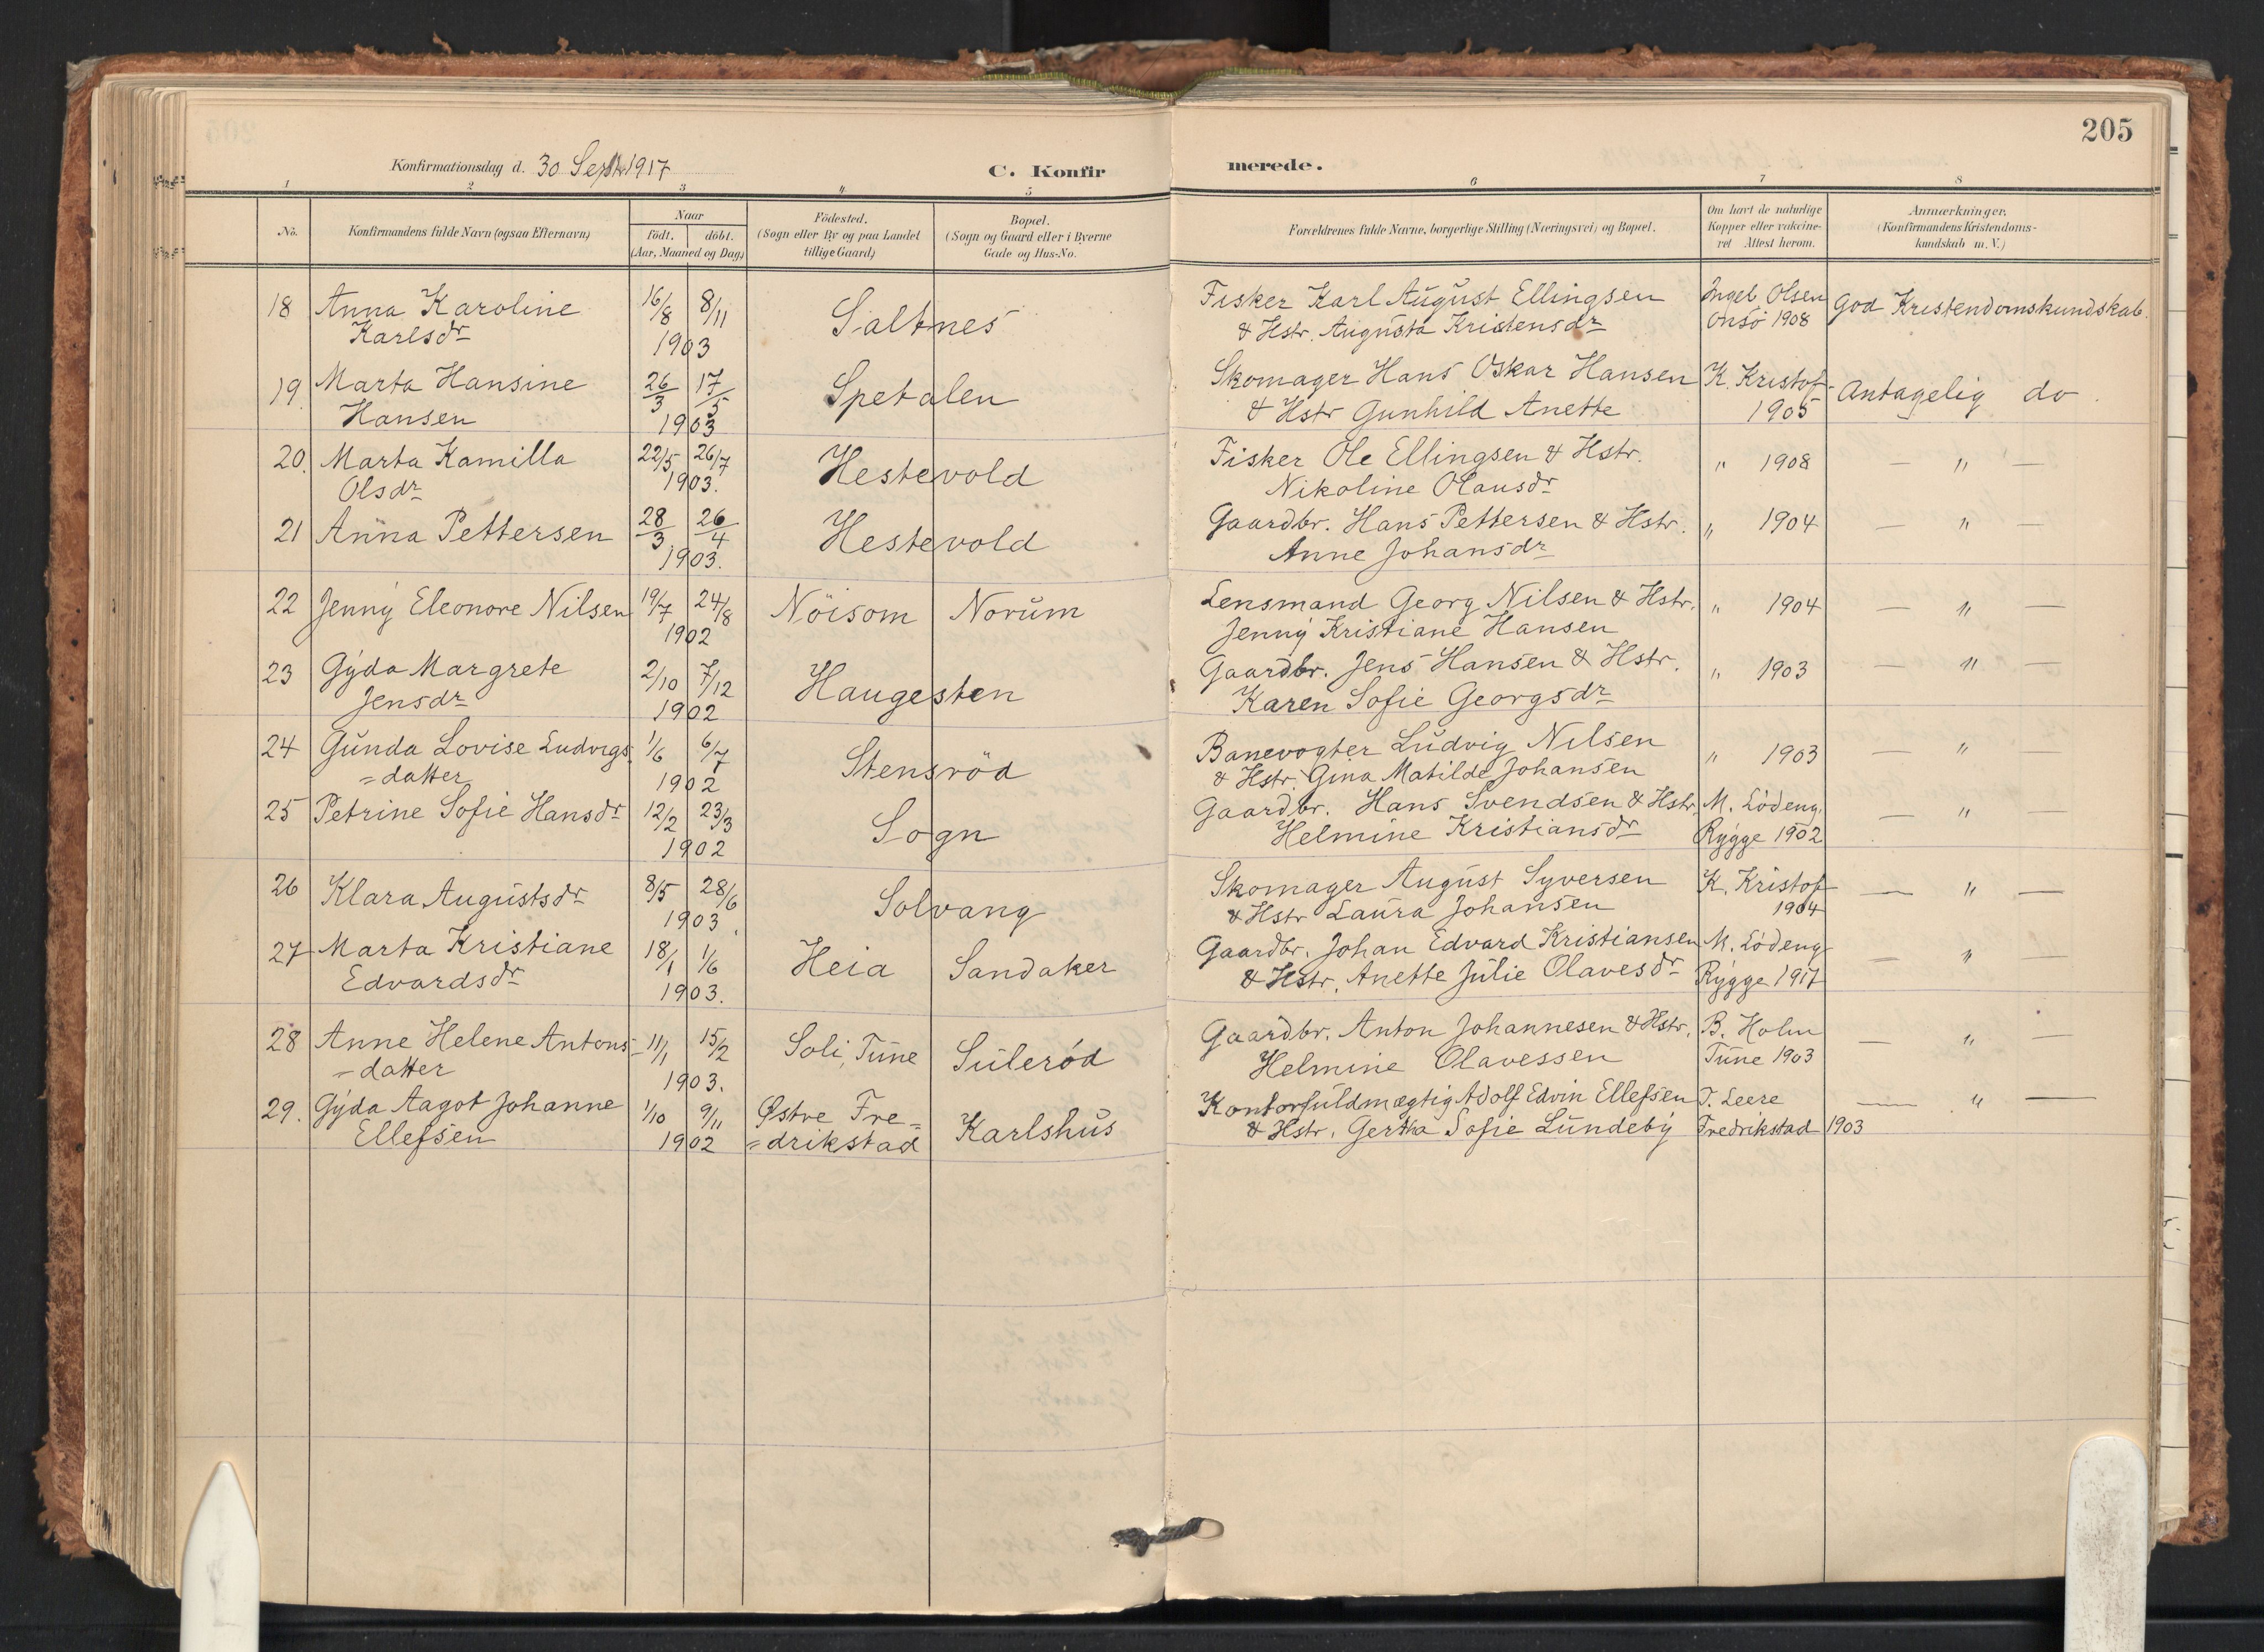 205
Konfirmationsdag d. 30 Septbr 1917
C. Konfir
merede.
1 2 3 4 5 6 7 8
No. Konfirmandens fulde Navn (ogsaa Efternavn) Naar født. døbt. (Aar, Maaned og Dag) Födested. (Sogn eller By og paa Landet tillige Gaard) Bopæl. (Sogn og Gaard eller i Byerne Gade og Hus-No. Forældrenes fulde Navne, borgerlige Stilling (Næringsvei) og Bopæl. Om havt de naturlige Kopper eller vakcineret Attest herom. Anmærkninger. (Konfirmandens Kristendomskundskab m. V.)
18 Anna Karoline 16/8 8/11 Saltnes Fisker Karl August Ellingsen Ingeb. Olsen God Kristendomskundskab.
Karlsdr 1903 & Hstr. Augusta Kristensdr Onsö 1908
19. Marta Hansine 26/3 17/5 Spetalen Skomager Hans Oskar Hansen K. Kristof- Antagelig do.
Hansen 1903 & Hstr Gunhild Anette 1905
20. Marta Kamilla 22/5 26/7 Hestevold Fisker Ole Ellingsen & Hstr. " 1908 — " —
Olsdr 1903. Nikoline Olausdr
21 Anna Pettersen 28/3 26/4 Hestevold Gaardbr. Hans Pettersen & Hstr. " 1904 — " —
1903. Anne Johansdr
22 Jenny Eleonore Nilsen 19/7 24/8 Nöisom Norum Lensmand Georg Nilsen & Hstr. " 1904 — " —
1902 Jenny Kristiane Hansen
23 Gyda Margrete 2/10 7/12 Haugesten Gaardbr. Jens Hansen & Hstr. " 1903 — " —
Jensdr 1902 Karen Sofie Georgsdr
24 Gunda Lovise Ludvigs- 1/6 6/7 Stensröd Banevogter Ludvig Nilsen " 1903 — " —
=datter 1902 & Hstr. Gina Matilde Johansen
25 Petrine Sofie Hansdr 12/2 23/3 Sogn Gaardbr. Hans Svendsen & Hstr. M. Lödeng. — " —
1902 Helmine Kristiansdr Rygge 1902
26 Klara Augustsdr 8/5 28/6 Solvang Skomager August Syversen K. Kristof- — " —
1903. & Hstr Laura Johansen 1904
27 Marta Kristiane 18/1 1/6 Heia Sandaker Gaardbr. Johan Edvard Kristiansen M. Lödeng — " —
Edvardsdr 1903. & Hstr. Anette Julie Olavesdr Rygge 1917
28 Anne Helene Antons- 11/1 15/2 Soli, Tune Sulerød Gaardbr. Anton Johannesen & Hstr. B. Holm — " —
=datter 1903. Helmine Olavessen Tune 1903
29. Gyda Aagot Johanne 1/10 9/11 Østre Fre= Karlshus Kontorfuldmægtig Adolf Edvin Ellefsen T. Leere — " —
Ellefsen 1902 =drikstad & Hstr. Gertha Sofie Lundeby Fredrikstad 1903